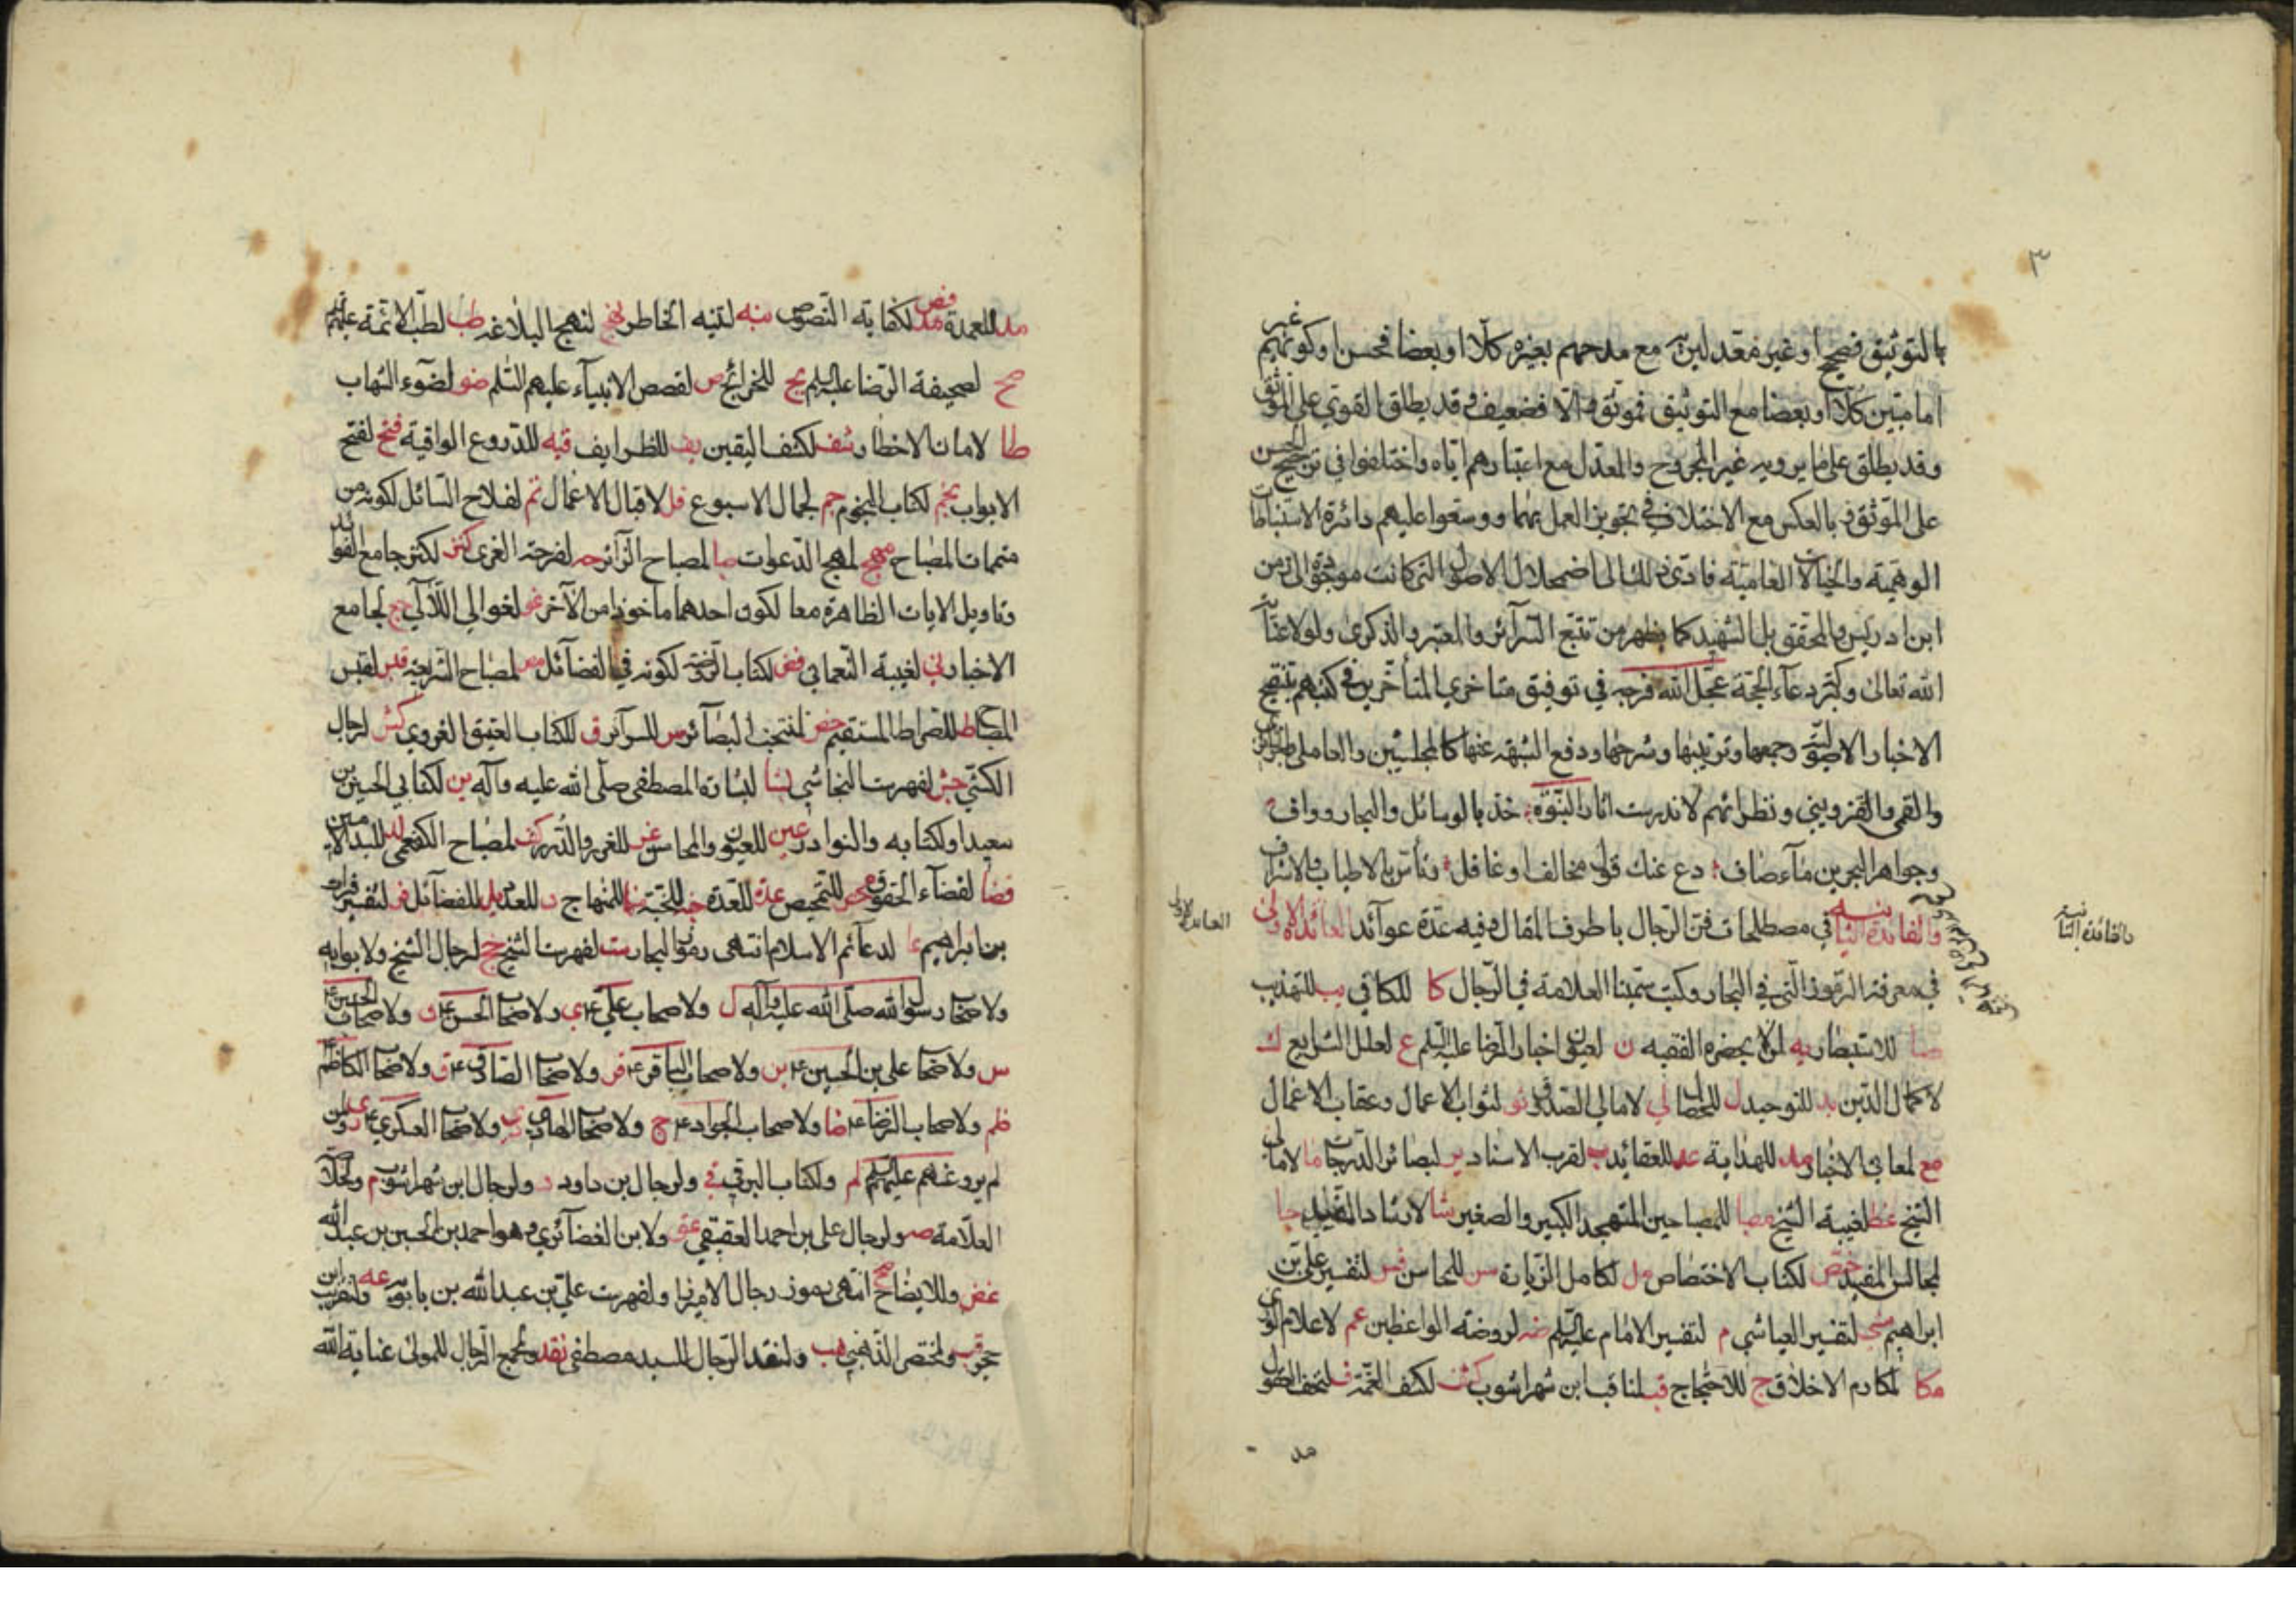 ٣
بالتوثيق فصحيح او غير معدلين مع مدحهم بغيره كلا او بعضا فحسن او كونهم غير
اماميين كلا او بعضا مع التوثيق فموثق والا فضعيف وقد يطلق القوي على الموثق
وقد يطلق على ما يرويه غير المجروح والمعدل مع اعتبارهم اياه واختلفوا في ترجيح الحسن
على الموثق وبالعكس مع الاختلاف في تجويز العمل بهما ووسعوا عليهم دائرة الاستنباطات
الوهمية والخيالات العامية فادى ذلك الى اضمحلال الاصول التي كانت موجودة الى زمن
ابن ادريس والمحقق بل الشهيد كما يظهر من تتبع السرآئر والمعتبر والذكرى ولولا عناية
الله تعالى وكثرة دعآء الحجة عجل الله فرجه في توفيق متاخري المتأخرين في كتبهم بتنقيح
الاخبار الاصولية وجمعها وترتيبها وشرحها ودفع الشبهة عنها كالمجلسيين والعاملي والبحراني
والقمي والقزويني ونظرائهم لاندرست اثار النبوة خذ بالوسائل والبحار وواف
وجواهر البحرين مآء صاف دع عنك قول مخالف او غافل وتأس بالاطياب والاشراف
والفائدة الثانية في مصطلحات فن الرجال باطرف المقال وفيه عدة عوآئد العائدة الاولى
في معرفة الرموز التي في البحار وكتب سمينا العلامة في الرجال كا للكافي يب للتهذيب
صا للاستبصار يه لمن لا يحضره الفقيه ن لعيون اخبار الرضا عليه السلم ع لعلل الشرايع ك
لاكمال الدين يد للتوحيد ل للخصال لي لامالي الصدوق ثو لثواب الاعمال وعقاب الاعمال
مع لمعاني الاخبار هد للهداية عد للعقائد ب لقرب الاسناد ير لبصائر الدرجات ما لامالي
الشيخ غط لغيبة الشيخ مصبا للمصباحين المتهجد الكبير والصغير شا لارشاد المفيد جا
لمجالس المفيد ختص لكتاب الاختصاص مل لكامل الزيارة سن للمحاسن فس لتفسير علي بن
ابراهيم شي لتفسير العياشي م لتفسير الامام عليه السلم ضه لروضة الواعظين عم لاعلام الورى
مكا لمكارم الاخلاق ج للاحتجاج قب لمناقب ابن شهراشوب كشف لكشف الغمة ف لتحف العقول
مد
والفائدة الثانية
العائدة الاولى
مد للعمدة نص لكفاية النصوص نبه لتنبيه الخاطر نهج لنهج البلاغة طب لطب الائمة عليهم السلم
صح لصحيفة الرضا عليه السلم يج للخرائج ص لقصص الانبيآء عليهم السلم ضو لضوء الشهاب
طا لامان الاخطار شف لكشف اليقين يف للطرايف قيه للدروع الواقية فتح لفتح
الابواب نجم لكتاب النجوم جم لجمال الاسبوع قل لاقبال الاعمال تم لفلاح السائل لكونه من
متممات المصباح مهج لمهج الدعوات صبا لمصباح الزائر حه لفرحة الغرى كنز لكنز جامع الفوائد
وتاويل الايات الظاهرة معا لكون احدهما ماخوذا من الآخر غو لغوالي اللآلي جع لجامع
الاخبار ني لغيبة النعماني فض لكتاب الروضة لكونه في الفضآئل مص لمصباح الشريعة قبس لقبس
المصباح ط للصراط المستقيم خص لمنتخب البصآئر سر للسرآئر ق للكتاب العتيق الغروي كش لرجال
الكشي جش لفهرست النجاشي بشا لبشارة المصطفى صلى الله عليه وآله ين لكتابي الحسين بن
سعيد او لكتابه والنوادر عين للعيون والمحاسن غر للغرر والدرر كف لمصباح الكفعمي لد للبلد الامين
قضا لقضآء الحقوق محص للتمحيص عدة للعدة جنة للجنة منها للمنهاج د للعدد يل للفضآئل فر لتفسير فرات
بن ابراهيم عا لدعآئم الاسلام انتهى رموز البحار ست لفهرست الشيخ جخ لرجال الشيخ ولابوابه
ولاصحاب رسول الله صلى الله عليه وآله ل ولاصحاب علي ع ي ولاصحاب الحسن ع ن ولاصحاب الحسين ع
س ولاصحاب علي بن الحسين ع ين ولاصحاب الباقر ع قر ولاصحاب الصادق ع ق ولاصحاب الكاظم ع
ظم ولاصحاب الرضا ع ضا ولاصحاب الجواد ع ج ولاصحاب الهادي دي ولاصحاب العسكري ع ري ولمن
لم يرو عنهم عليهم السلم لم ولكتاب البرقي قي ولرجال بن داود د ولرجال ابن شهراشوب م ولخلاصة
العلامة صه ولرجال علي بن احمد العقيقي عق ولابن الغضآئري وهو احمد بن الحسين بن عبيد الله
غض وللايضاح ضح انتهى رموز رجال الاميرزا ولفهرست علي بن عبدالله بن بابويه عه ولتقريب ابن
حجر قب ولمختصر الذهبي هب ولنقد الرجال للسيد مصطفى نقد ولمجمع الرجال للمولى عناية الله